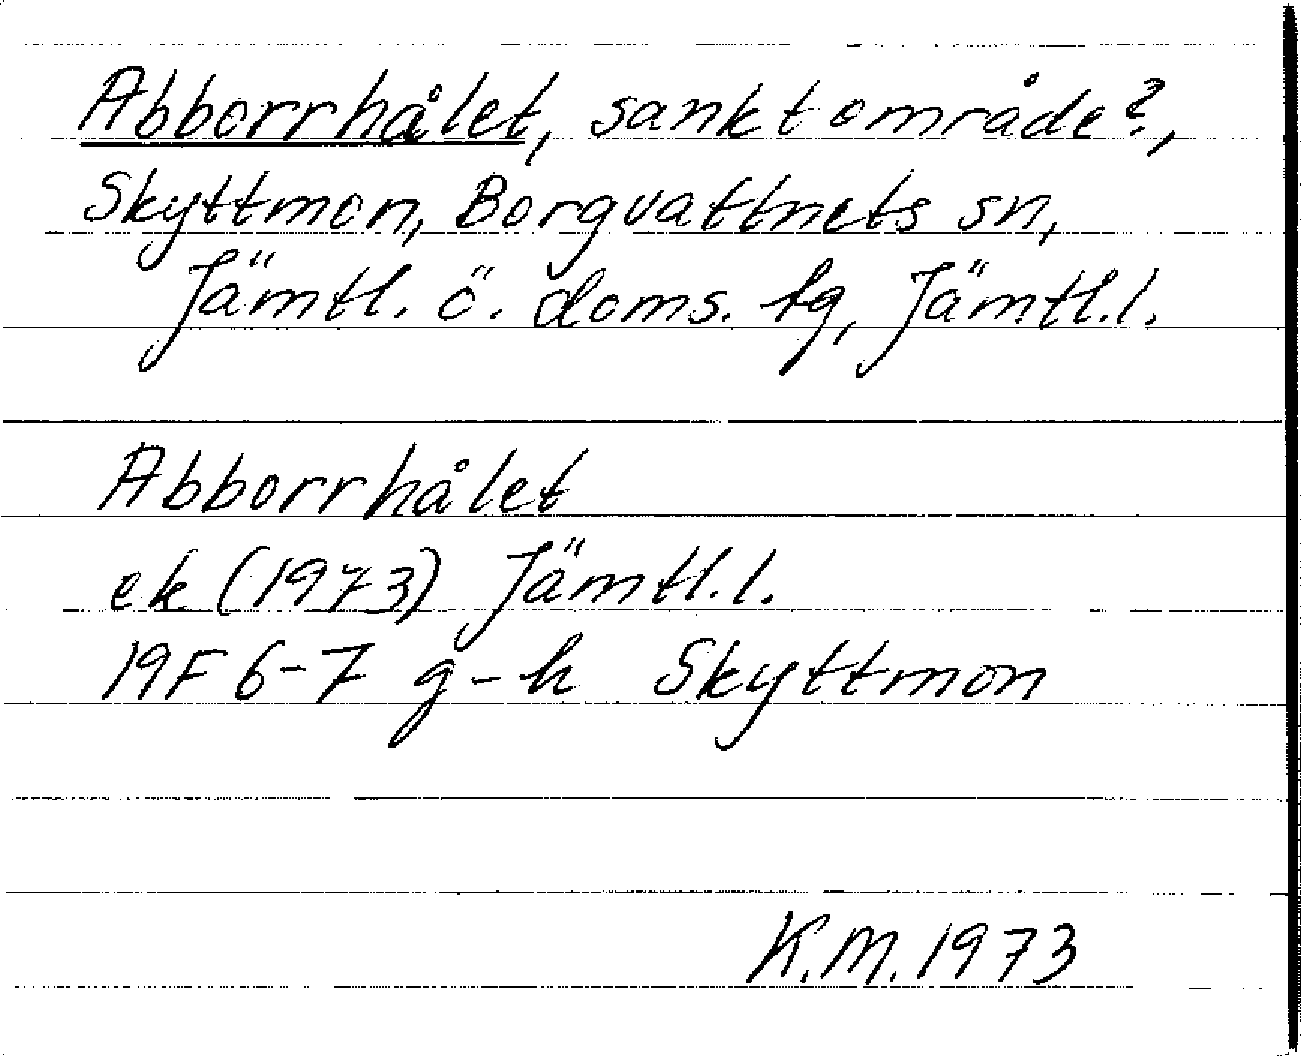 Abborrhålet, sankt område?,
Skyttmon, Borgvattnets sn,
Jämtl. ö. doms. tg, Jämtl.l.
Abborrhålet
ek (1973) Jämtl.l.
19F 6-7 g-h Skyttmon
K.M. 1973